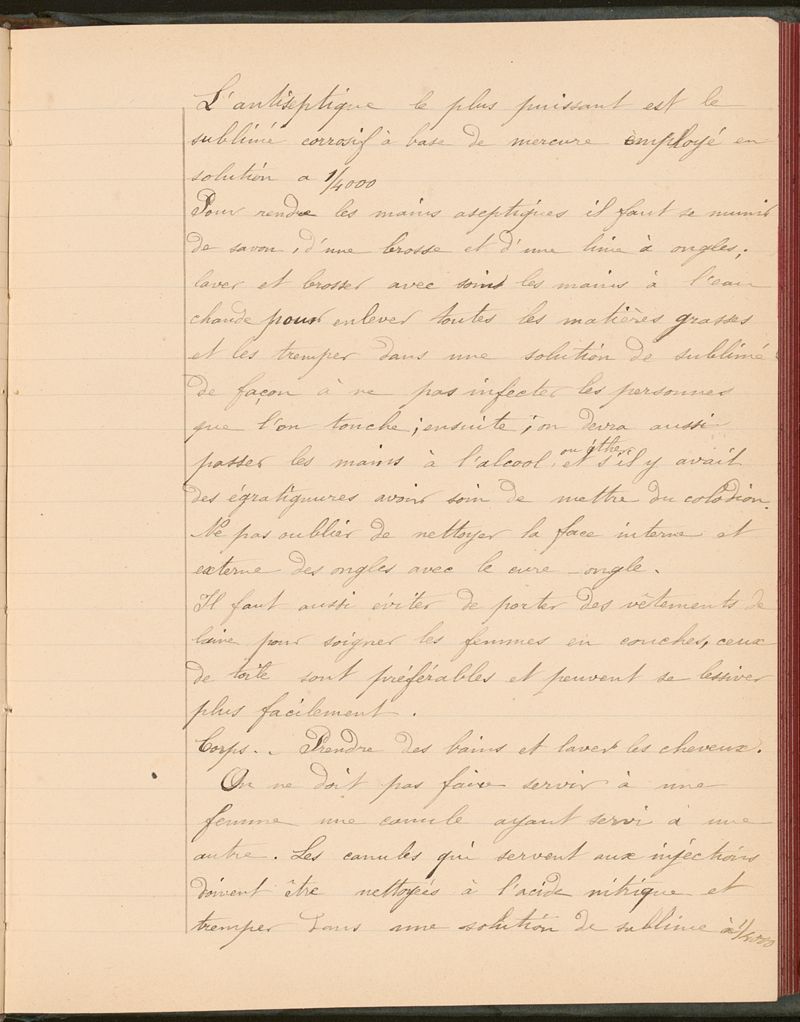 L'antiseptique le plus puissant est le
sublimé corrosif à base de mercure employé en
solution a 1/4000
Pour rendre les mains aseptiques il faut se munir
de savon, d'une brosse et d'une lime à ongles;
laver et brosser avec soins les mains à l'eau
chaude pour enlever toutes les matières grasses
et les tremper dans une solution de sublimé
de façon à ne pas infecter les personnes
que l'on touche; ensuite; on devra aussi
ou éther
passer les mains à l'alcool, et s'il y avait
des égratignures avoir soin de mettre du colodion.
Ne pas oublier de nettoyer la face interne et
externe des ongles avec le cure-ongle.
Il faut aussi éviter de porter des vêtements de
laine pour soigner les femmes en couches, ceux
de toile sont préférables et peuvent se lessiver
plus facilement.
Corps.. Prendre des bains et laver les cheveux.
On ne doit pas faire servir à une
femme une canule ayant servi à une
autre. Les canules qui servent aux injections
doivent être nettoyées à l'acide nitrique et
tremper dans une solution de sublimé à 1/4000